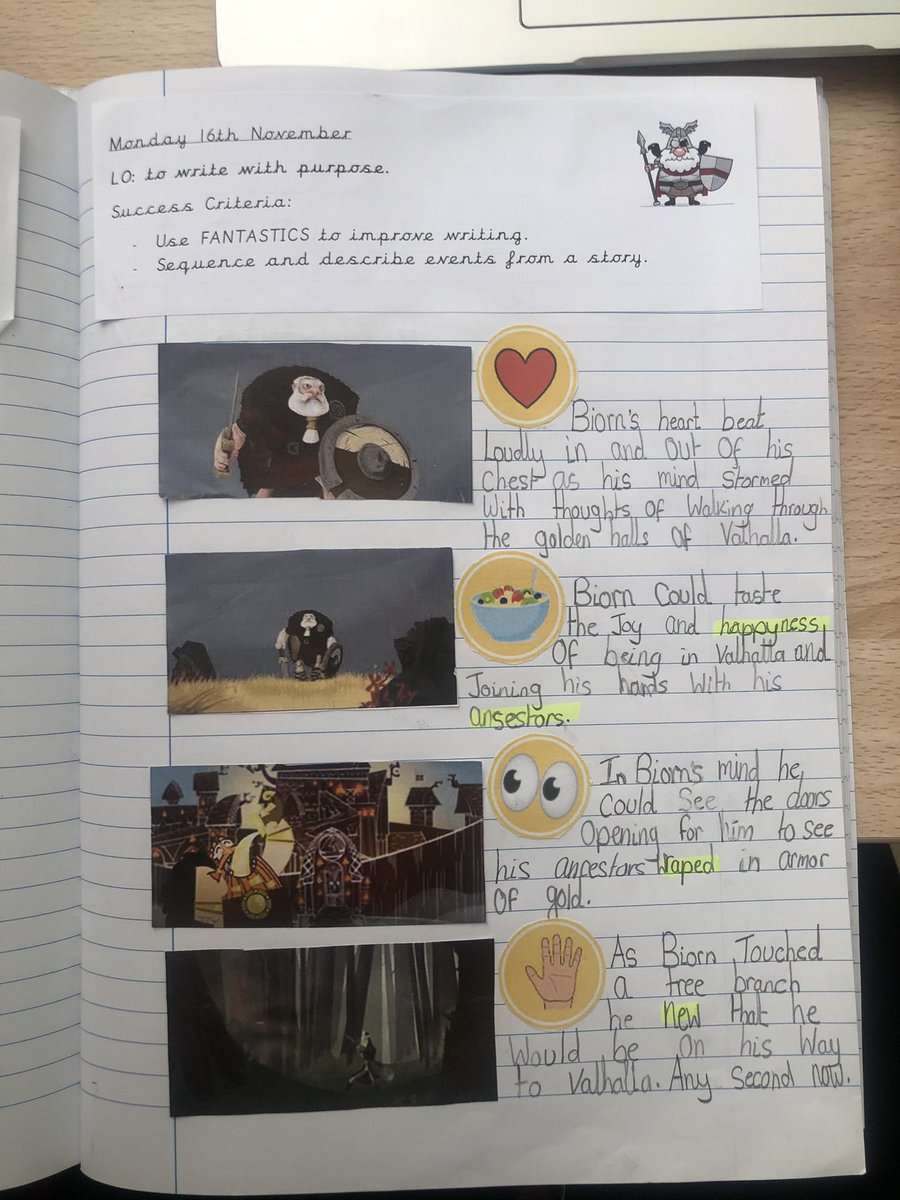 Monday 16th November
LO: to write with purpose.
Success Criteria:
- Use FANTASTICS to improve writing.
- Sequence and describe events from a story.
Biorn's heart beat
Loudly in and out of his
Chest as his mind stormed
With thoughts of Walking through
the golden halls of Valhalla.
Biorn Could taste
the Joy and happyness
Of being in Valhalla and
Joining his hands With his
ansestors.
In Biorn's mind he,
Could See the doors
Opening for him to see
his ancestors Wraped in armor
OF gold.
As Biorn Touched
a tree branch
he new that he
Would be On his Way
to Valhalla. Any Second now.